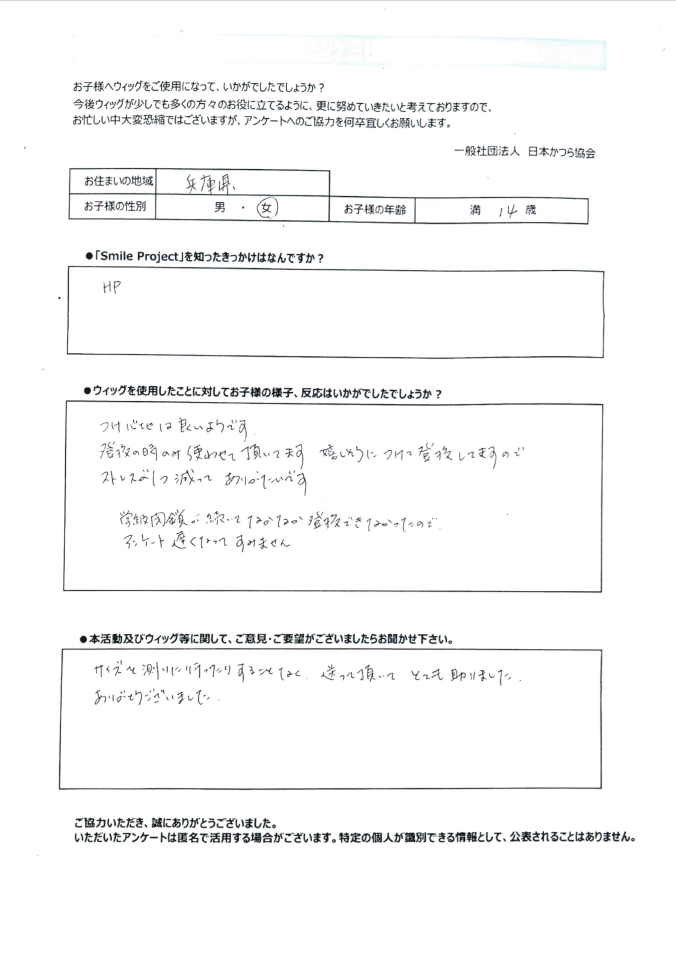 お子様へウィッグをご使用になって、いかがでしたでしょうか？
今後ウィッグが少しでも多くの方々のお役に立てるように、更に努めていきたいと考えておりますので、
お忙しい中大変恐縮ではございますが、アンケートへのご協力を何卒宜しくお願いします。
一般社団法人 日本かつら協会
お住まいの地域 兵庫県
お子様の性別 男 ・ 女 お子様の年齢 満 14 歳
●「Smile Project」を知ったきっかけはなんですか？
HP
●ウィッグを使用したことに対してお子様の様子、反応はいかがでしたでしょうか？
つけ心地は良いようです
登校の時のみ使わせて頂いてます 嬉しそうにつけて登校してますので
ストレスが1つ減って ありがたいです
学級閉鎖が続いてなかなか登校できなかったので
アンケート遅くなってすみません
●本活動及びウィッグ等に関して、ご意見・ご要望がございましたらお聞かせ下さい。
サイズを測りに行ったりすることなく 送って頂いて とても助りました.
ありがとうございました.
ご協力いただき、誠にありがとうございました。
いただいたアンケートは匿名で活用する場合がございます。特定の個人が識別できる情報として、公表されることはありません。